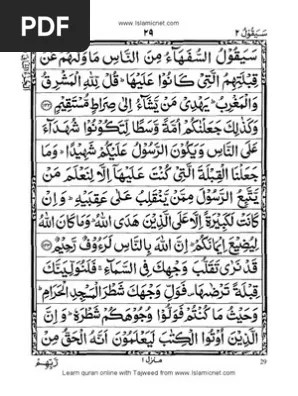 PDF
www.Islamicnet.com
سَيَقُولُ ٢
٢٩
سَيَقُولُ السُّفَهَآءُ مِنَ النَّاسِ مَا وَلّٰىهُمْ عَنْ
قِبْلَتِهِمُ الَّتِیْ كَانُوْا عَلَيْهَا ؕ قُلْ لِّلّٰهِ الْمَشْرِقُ
وَالْمَغْرِبُ ؕ يَهْدِیْ مَنْ يَّشَآءُ اِلٰى صِرَاطٍ مُّسْتَقِيْمٍ
وَكَذٰلِكَ جَعَلْنٰكُمْ اُمَّةً وَّسَطًا لِّتَكُوْنُوْا شُهَدَآءَ
عَلَى النَّاسِ وَيَكُوْنَ الرَّسُوْلُ عَلَيْكُمْ شَهِيْدًا ؕ وَمَا
جَعَلْنَا الْقِبْلَةَ الَّتِیْ كُنْتَ عَلَيْهَآ اِلَّا لِنَعْلَمَ مَنْ
يَّتَّبِعُ الرَّسُوْلَ مِمَّنْ يَّنْقَلِبُ عَلٰى عَقِبَيْهِ ؕ وَاِنْ
كَانَتْ لَكَبِيْرَةً اِلَّا عَلَى الَّذِيْنَ هَدَى اللّٰهُ ؕ وَمَا كَانَ اللّٰهُ
لِيُضِيْعَ اِيْمَانَكُمْ ؕ اِنَّ اللّٰهَ بِالنَّاسِ لَرَءُوْفٌ رَّحِيْمٌ
قَدْ نَرٰى تَقَلُّبَ وَجْهِكَ فِی السَّمَآءِ ۚ فَلَنُوَلِّيَنَّكَ
قِبْلَةً تَرْضٰىهَا ۪ فَوَلِّ وَجْهَكَ شَطْرَ الْمَسْجِدِ الْحَرَامِ ؕ
وَحَيْثُ مَا كُنْتُمْ فَوَلُّوْا وُجُوْهَكُمْ شَطْرَهٗ ؕ وَاِنَّ
الَّذِيْنَ اُوْتُوا الْكِتٰبَ لَيَعْلَمُوْنَ اَنَّهُ الْحَقُّ مِنْ
رَّبِّهِمْ
منزل ١
29
Learn quran online with Tajweed from www.Islamicnet.com